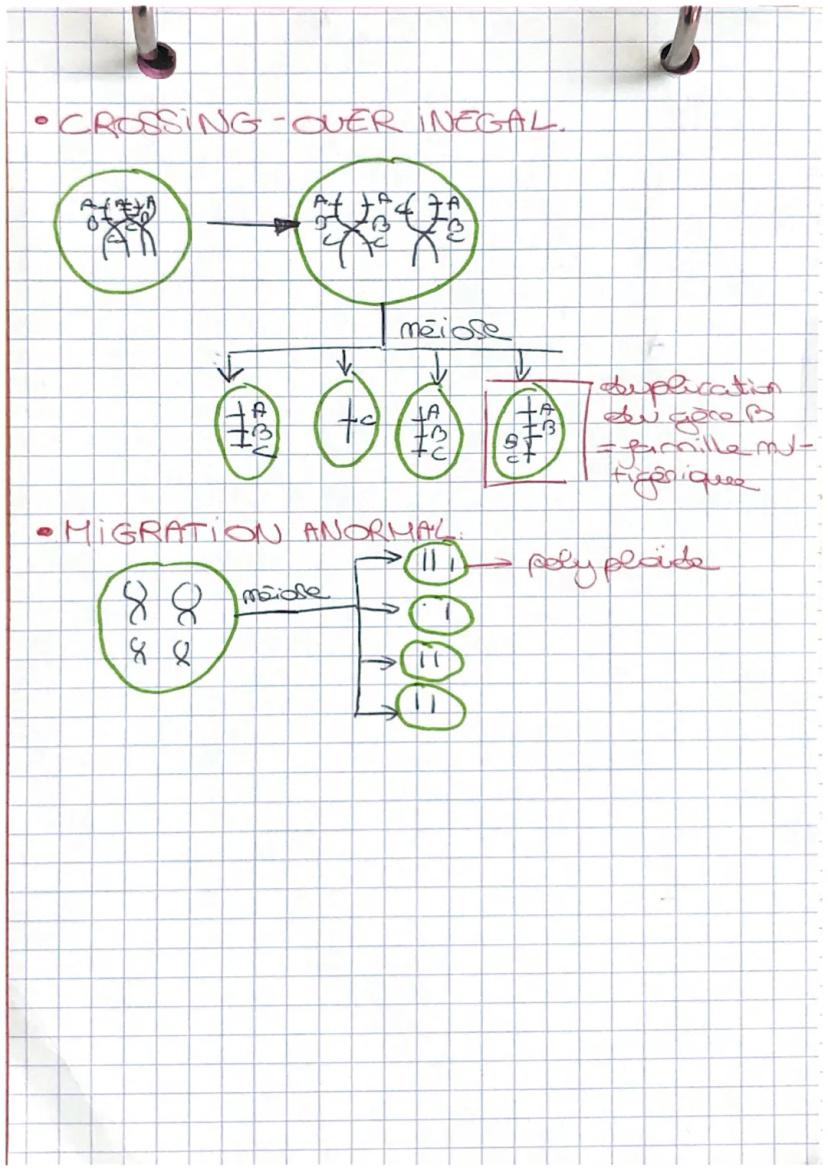 • CROSSING-OVER INEGAL.
A A A
B B
C C
A A A
B B B
C C C
méiose
A C A A
B B B
C C B
C
duplication
du gène B
= famille mul-
tigénique
• MIGRATION ANORMAL.
méiose
polyploïde